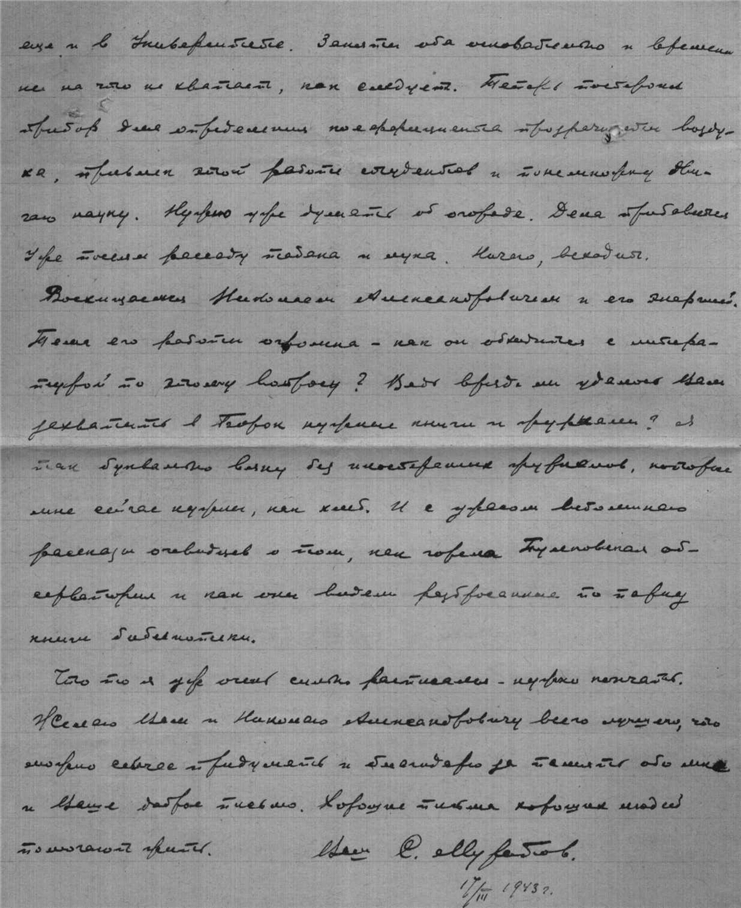 еще и в Университете. Заняты оба основательно и времени
ни на что не хватает, как следует. Теперь построил
прибор для определения коеффициента прозрачности возду-
ха, привлек этой работе студентов и понемножку дви-
гаю науку. Нужно уже думать об огороде. Дела прибавится
Уже посеял рассаду табака и лука. Ничего, всходит.
Восхищаемся Николаем Александровичем и его энергией.
Тема его работы огромна - как он обходится с литера-
турой по этому вопросу? Ведь вряд ли удалось Вам
захватить в Елабугу нужные книги и журналы? Я
так буквально вяну без иностранных журналов, которые
мне сейчас нужны, как хлеб. И с ужасом вспоминаю
рассказы очевидцев о том, как горела Пулковская об-
серватория и как они видели разбросанные по парку
книги библиотеки.
Что то я уж очень сильно расписался - нужно кончать.
Желаю Вам и Николаю Александровичу всего лучшего, что
можно сейчас придумать и благодарю за память обо мне
и Ваше доброе письмо. Хорошие письма хороших людей
помогают жить. Ваш С. Муратов.
17/III 1943 г.